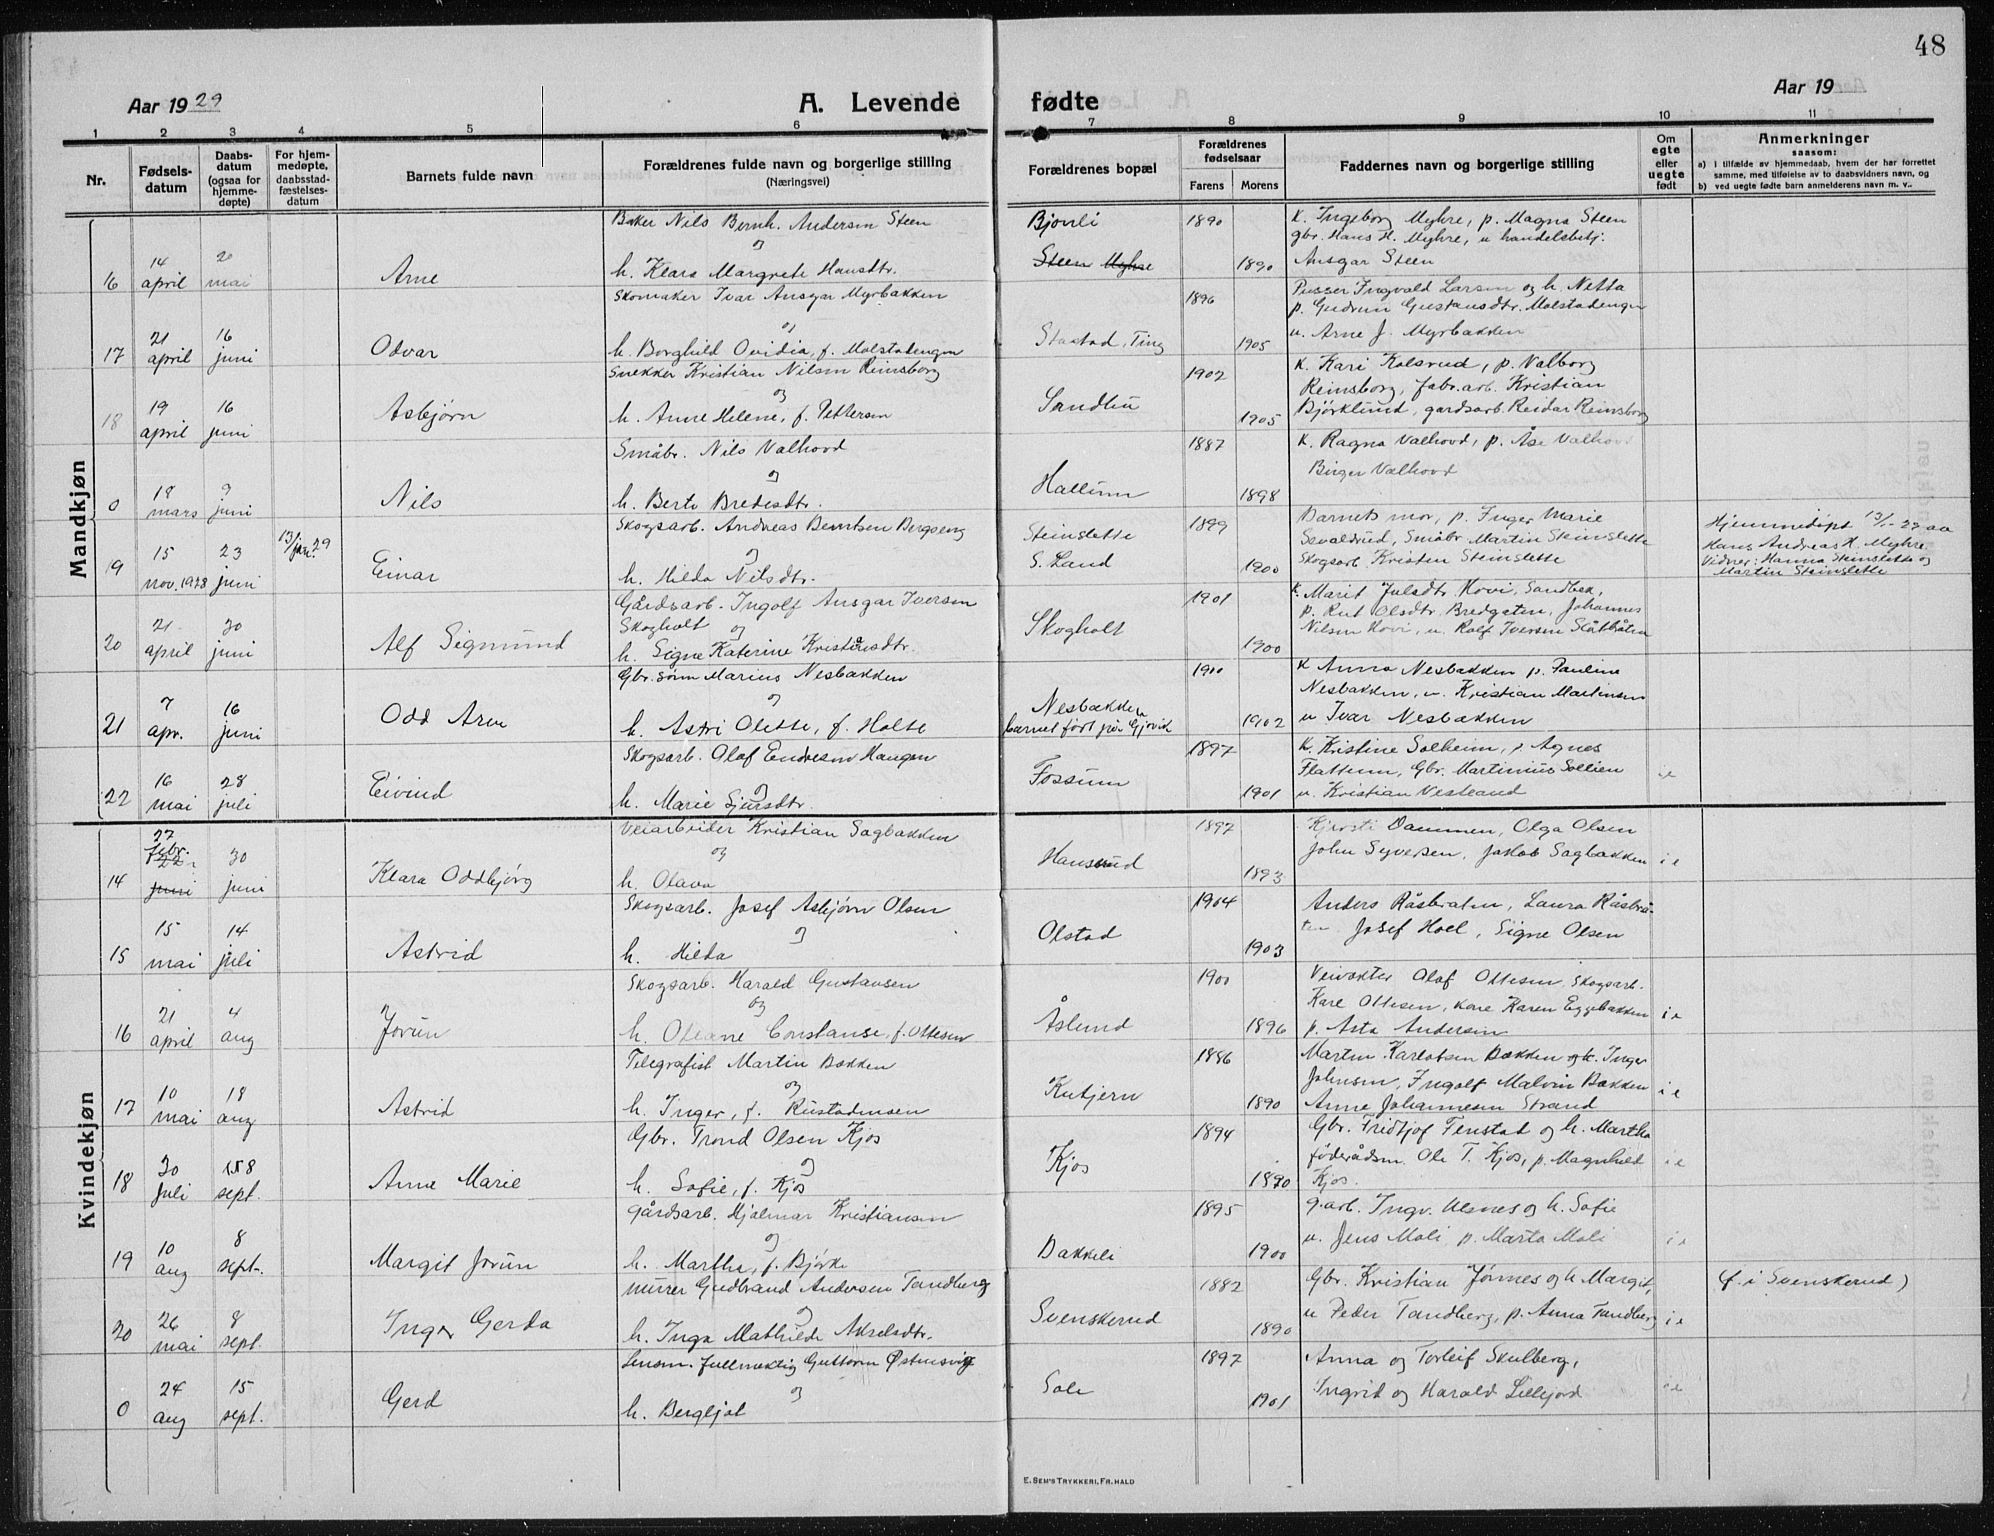 48
Aar 1929
A. Levende fødte
Aar 19
1 2 3 4 5 6 7 8 9 10 11
Nr.
Fødsels-
datum
Daabs-
datum
(ogsaa for
hjemme-
døpte)
For hjem-
medøpte,
daabsstad-
fæstelses-
datum
Barnets fulde navn
Forældrenes fulde navn og borgerlige stilling
(Næringsvei)
Forældrenes bopæl
Forældrenes
fødselsaar
Farens Morens
Faddernes navn og borgerlige stilling
Om
egte
eller
uegte
født
Anmerkninger
saasom:
a) i tilfælde av hjemmedaab, hvem der har forrettet
samme, med tilføielse av to daabsvidners navn, og
b) ved uegte fødte barn anmelderens navn m. v..
Mandkjøn
Baker Nils Bernh. Andersen Steen Bjonli 1890 K. Ingeborg Myhre, p. Magna Steen
og gbr. Hans H. Myhre, u handelsbetj.
16 14 april 20 mai Arne h. Klara Margrete Hansdtr. Steen Myhre 1890 Ansgar Steen
Skomaker Ivar Ansgar Myrbakken 1896 Pusser Ingvald Larsen og h. Netta
og p. Gudrun Gustavsdtr. Molstadengen
17 21 april 16 juni Odvar h. Borghild Ovidia, f. Molstadengen Stastad, Ting 1905 u. Arne J. Myrbakken
Snekker Kristian Nilsen Reinsborg 1902 K. Kari Kolsrud, p. Valborg
og Reinsborg, fabr.arb. Kristian
18 19 april 16 juni Asbjørn h. Anne Helene, f. Pettersen Sandliu 1905 Björklund, gardsarb. Reidar Reinsborg
Småbr. Nils Valhovd 1887 K. Ragna Valhovd, p. Åse Valhovd
og Birger Valhovd
0 18 mars 9 juni Nils h. Berte Bredesdtr. Hallum 1898
Skogsarb. Andreas Berntsen Bergseng Steinslette 1899 Barnets mor, p. Inger Marie Hjemmedøpt 13/1-29 av
og Sevaldrud, Småbr Martin Steinslette Hans Andreas H. Myhre.
19 15 nov. 1928 23 juni 13/jan. 29 Einar h. Hilda Nilsdtr. S. Land 1900 Skogsarb Kristen Steinslette Vidner: Hanna Steinslette og
Martin Steinslette
Gårdsarb. Ingolf Ansgar Iversen 1901 K. Marit Julsdtr Hovi, Sandbek,
Skogholt og Skogholt p. Rut Olsdtr. Bredgaten, Johannes
20 21 april 30 juni Alf Sigmund h. Signe Katerine Kristiansdtr. 1900 Nilsen Hovi, u. Rolf Iversen
Gbr. sönn Marius Nesbakken 1900 K Anna Nesbakken p. Pauline
og Nesbakken Nesbakken, u. Kristian Martinsen
21 7 apr. 16 juni Odd Arne h. Astri Olette, f. Holte barnet fört på Gjövik 1902 u Ivar Nesbakken
Skogsarb. Olaf Endresen Haugen 1897 K. Kristine Solheim, p Agnes
og Flattum, Gbr. Martinius Sollien
22 16 mai 28 juli Eivind h. Marie Sjursdtr. Fossum 1901 u. Kristian Vestland i e
Kvindekjøn
Veiarbeider Kristian Sagbakken 1897 Kjersti Dammen, Olga Olsen
og John Syversen, Jakob Sagbakken i e
14 27 febr. 22 juni 30 juni Klara Oddbjörg h. Olava Hansrud 1893
Skogsarb. Josef Asbjörn Olsen 1904 Anders Råsbråten, Laura Råsbrå-
og ten Josef Hoel, Signe Olsen
15 15 mai 14 juli Astrid h. Hilda Olstad 1903
Skogsarb. Harald Gustavsen 1900 Veivokter Olaf Ottesen. Skogsarb.
og Kare Ottesen, kone Karen Eggebakken i e
16 21 april 4 aug Jorun h. Oleane Constanse, f. Ottesen Åslund 1896 p. Asta Andersen
Telegrafist Martin Bakken 1886 Martin Karlotsen Bakken og K. Inger
og Johnsen, Ingolf Malvin Bakken i e
17 10 mai 18 aug Astrid h. Inger, f. Rustadensen Kutjern 1890 Anne Johannesen Strand
Gbr. Trond Olsen Kjos 1894 Gbr. Fridtjof Fenstad og h. Martha
og föderådsm. Ole T. Kjos, p. Magnhild i e
18 20 juli 158 sept. Anne Marie h. Sofie, f. Kjos Kjos 1890 Kjos.
Gårdsarb. Hjalmar Kristiansen 1895 g.arb. Ingv. Ulsnes og h. Sofie
og u. Jens Moli p. Marta Moli i e
19 10 aug 8 sept. Margit Jorun h. Martha, f. Björke Bakkeli 1900
Murer Gudbrand Andersen Tandberg 1882 Gbr. Kristian Jönnes og h Margit, (f. i Svenskerud)
og u Peder Tandberg, p. Anna Tandberg i e
20 26 mai 8 sept. Inger Gerda h. Inga Mathilde Akselsdtr. Svenskerud 1890
Lensm. fullmektig Guttorm Østensvig 1897 Anna og Torleif Skulberg,
og Ingrid og Harald Lillejord i e
0 24 aug 15 sept. Gerd h. Bergljot Sole 1901
E. SEM'S TRYKKERI, FR.HALD